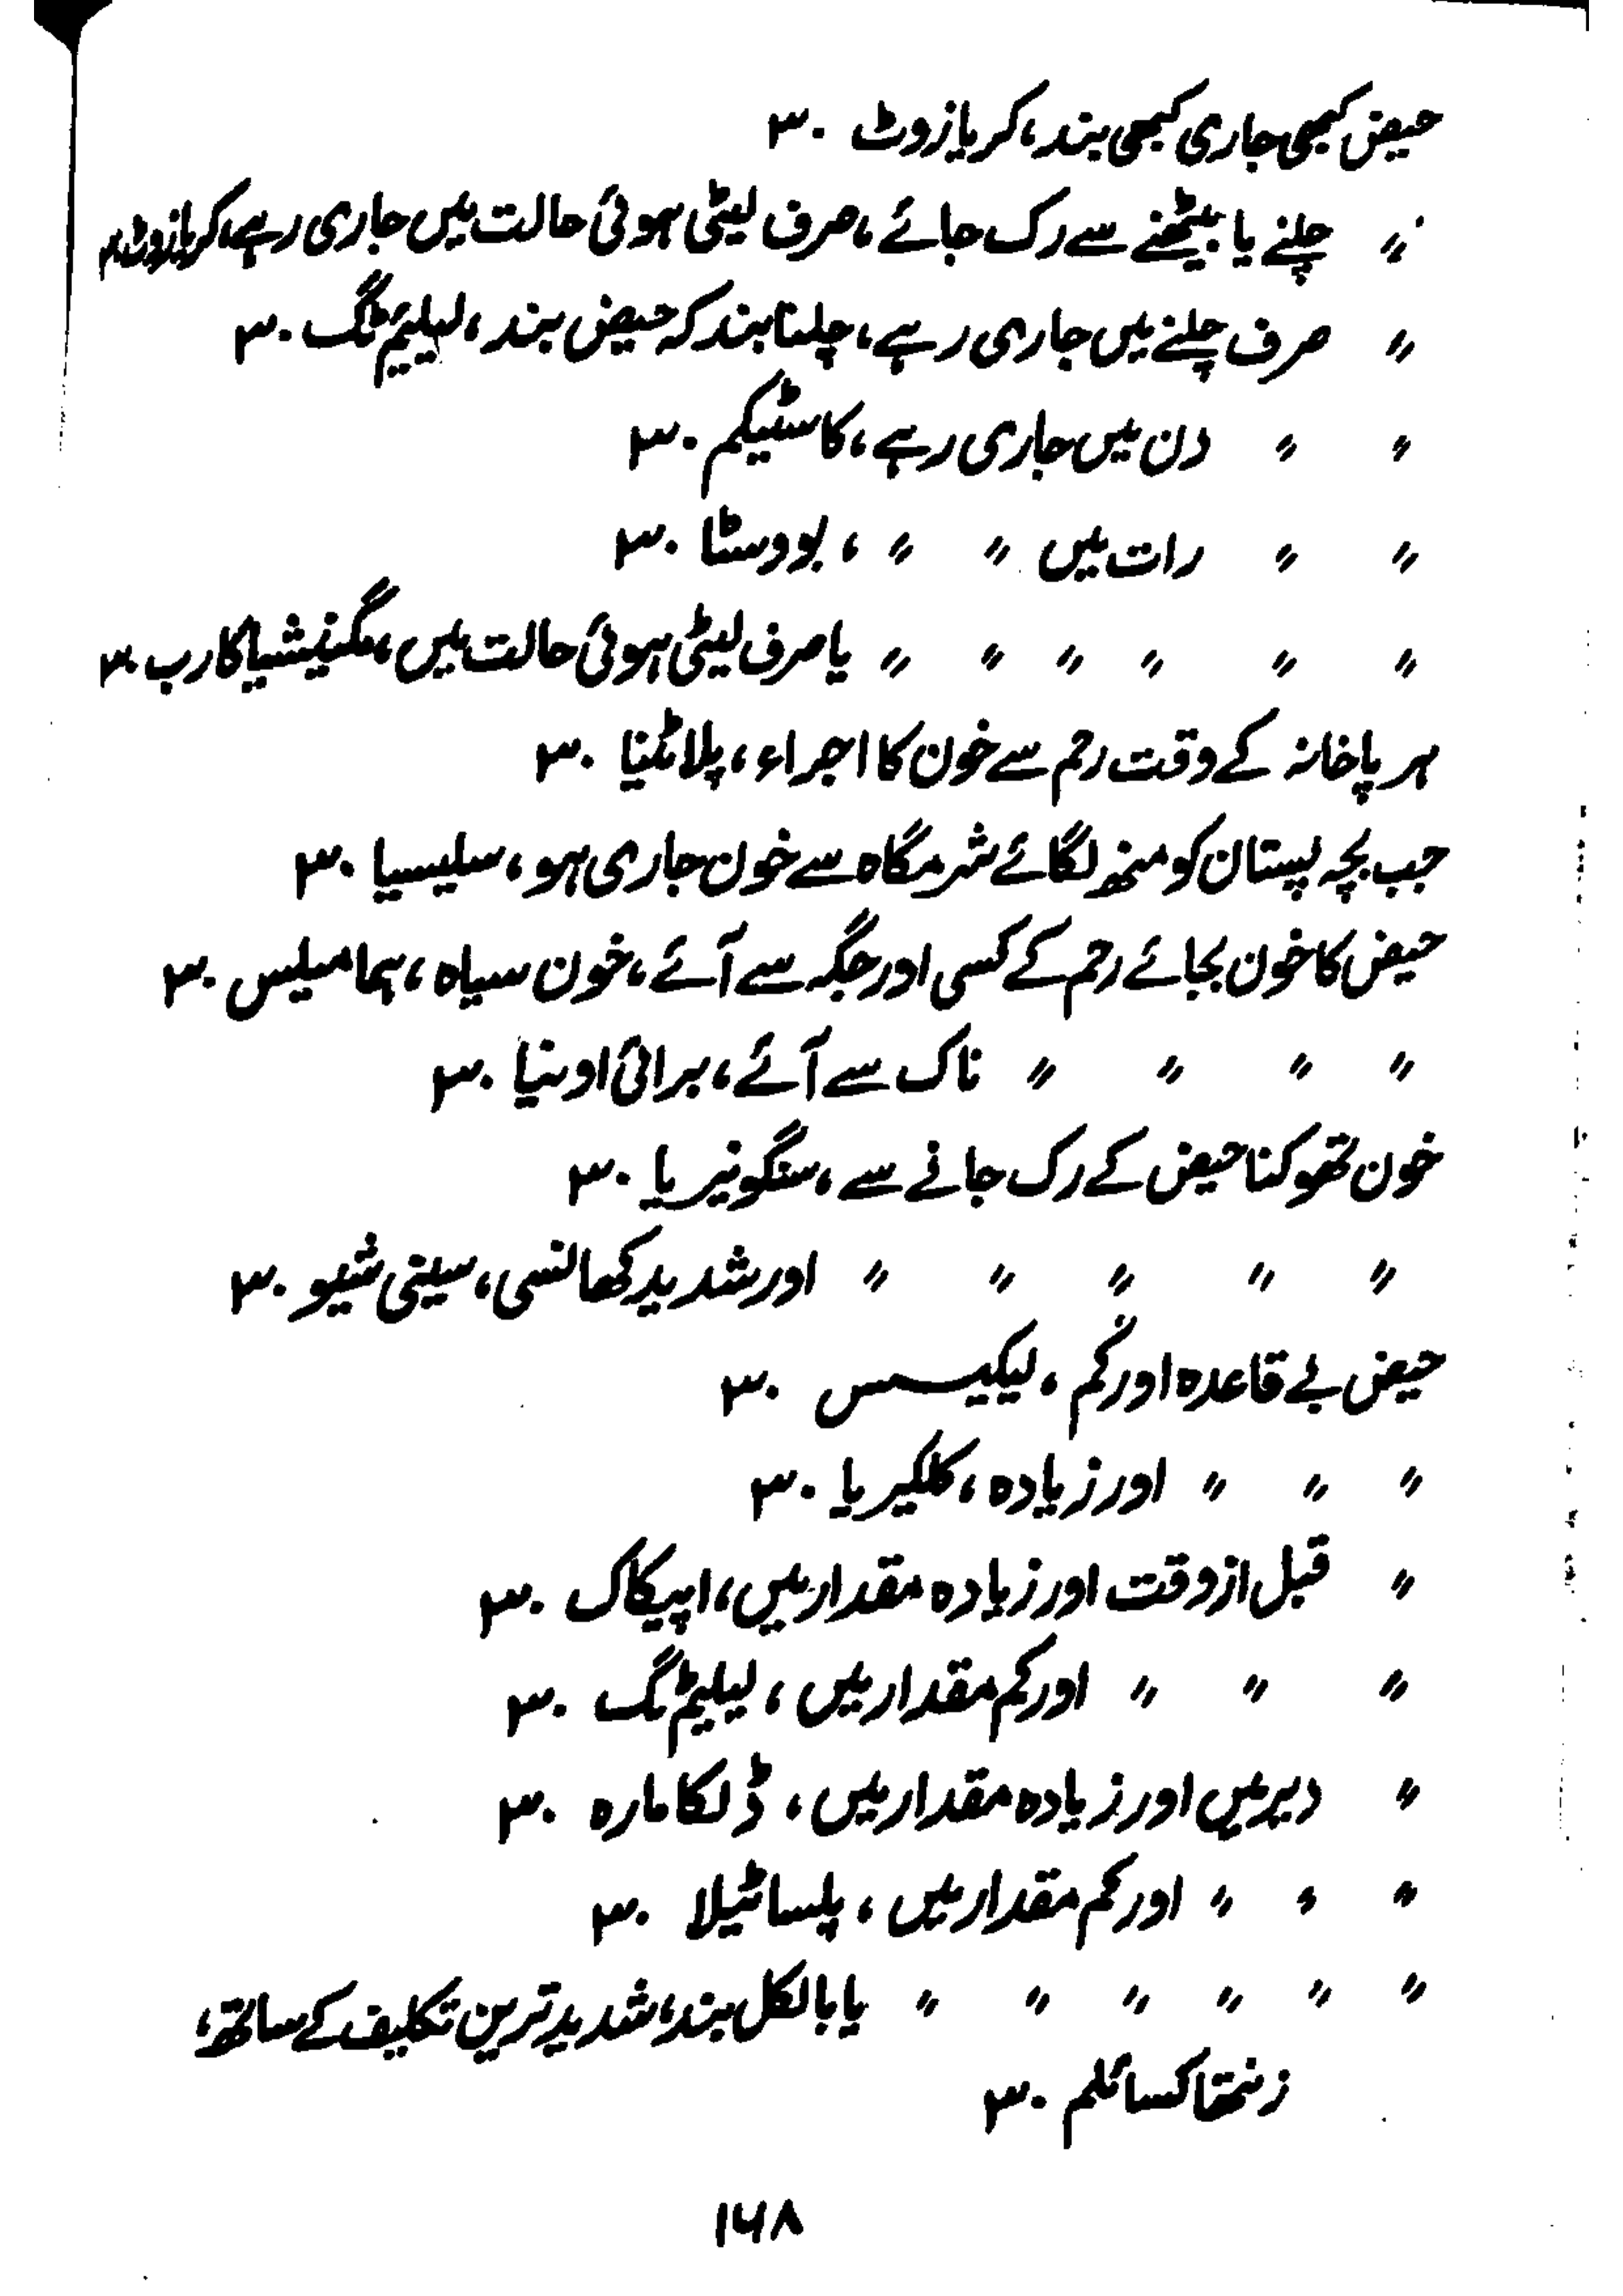 حیض کبھی جاری کبھی بند، کریازوٹ ۳۰
〃 چلنے یا بیٹھنے سے رک جائے، صرف لیٹی ہوئی حالت میں جاری رہے، کریازوٹ ۳۰
〃 صرف چلنے میں جاری رہے، چلنا بند کہ حیض بند، لیلیم ٹگ ۳۰
〃 〃 دن میں جاری رہے، کاسٹیکم ۳۰
〃 〃 رات میں 〃 〃، بووسٹا ۳۰
〃 〃 〃 〃 〃 〃 یا صرف لیٹی ہوئی حالت میں، مگنیشیا کارب ۳۰
ہر پاخانہ کے وقت رحم سے خون کا اجراء، پلاٹینا ۳۰
جب بچہ پستان کو منہ لگائے شرمگاہ سے خون جاری ہو، سلیسیا ۳۰
حیض کا خون بجائے رحم کے کسی اور جگہ سے آئے، خون سیاہ، ہمامیلیس ۳۰
〃 〃 〃 〃 ناک سے آئے، برائی اونیا ۳۰
خون تھوکنا حیض کے رک جانے سے، سنگونیریا ۳۰
〃 〃 〃 〃 〃 اور شدید کھانسی، سینی شیو ۳۰
حیض بے قاعدہ اور کم، لیکیسس ۳۰
〃 〃 〃 اور زیادہ، کلکیریا ۳۰
〃 قبل از وقت اور زیادہ مقدار میں، اپیکاک ۳۰
〃 〃 〃 اور کم مقدار میں، لیلیم ٹگ ۳۰
〃 دیر میں اور زیادہ مقدار میں، ڈلکامارہ ۳۰
〃 〃 〃 اور کم مقدار میں، پلساٹیلا ۳۰
〃 〃 〃 〃 〃 〃 یا بالکل بند، شدید ترین تکلیف کے ساتھ،
زنتھاکسائلم ۳۰
۱۶۸